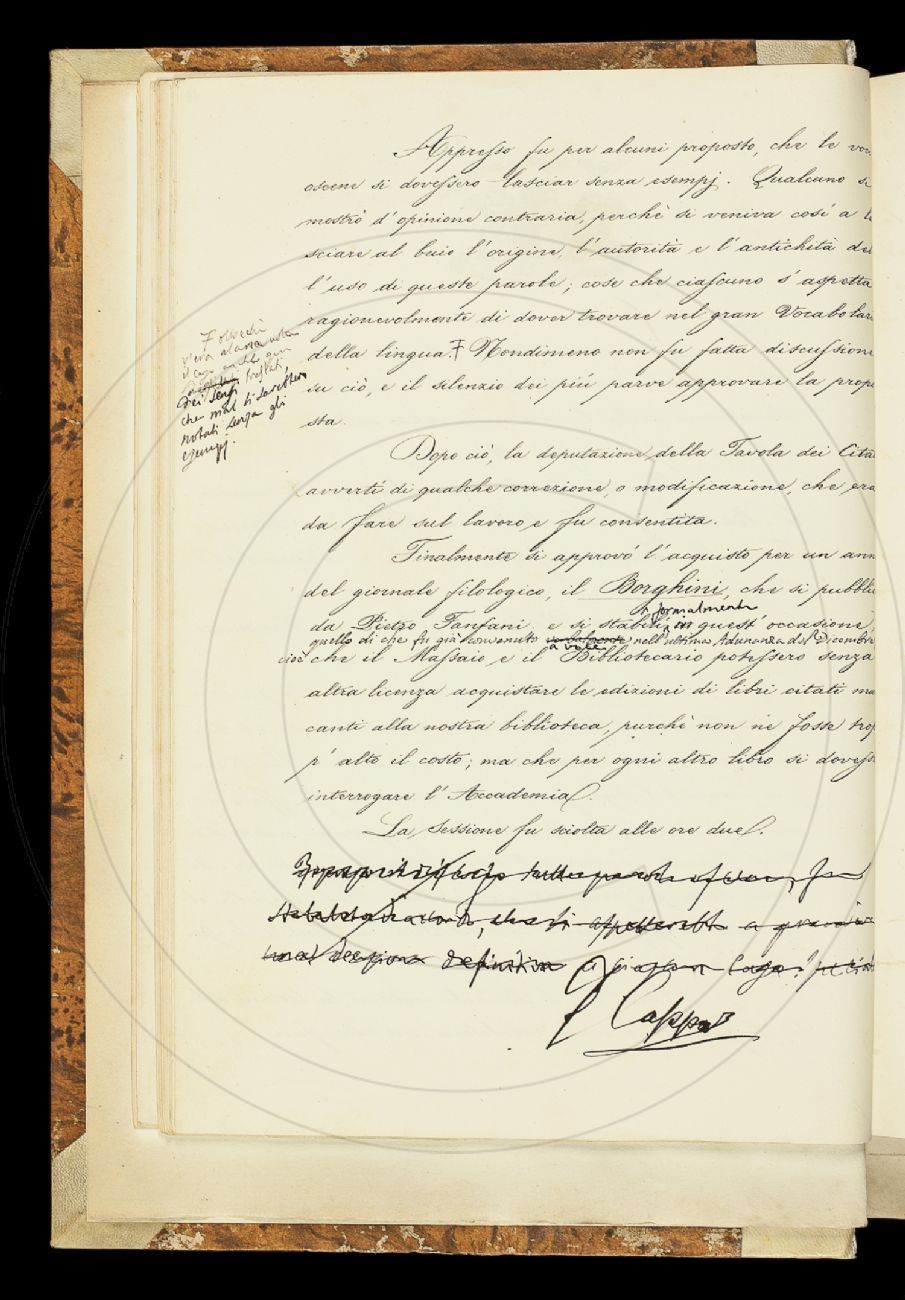 Appresso fu per alcuni proposto, che le voc
oscene si dovessero lasciar senza esempj. Qualcuno si
mostrò d'opinione contraria, perchè si veniva così a la
sciare al buio l'origine, l'autorità e l'antichità del
l'uso di queste parole; cose che ciascuno s'aspetta
ragionevolmente di dover trovare nel gran Vocabolar
della lingua. Nondimeno non fu fatta discussione
su ciò, e il silenzio dei più parve approvare la propo
sta.
dei sensi traslati,
che mal si sarebbero
notati senza gli
esempj.
Dopo ciò, la deputazione della Tavola dei Cita
avvertì di qualche correzione, o modificazione, che era
da fare sul lavoro e fu consentita.
Finalmente si approvò l'acquisto per un ann
del giornale filologico, il Borghini, che si pubbli
formalmente
da Pietro Fanfani e si stabilì, in quest'occasione,
quello di che fu già convenuto a voce nell'ultima Adunanza del Dicembre
cioè che il Massaio e il Bibliotecario potessero senza
altra licenza acquistare le edizioni di libri citati ma
canti alla nostra biblioteca, purchè non ne fosse trop
p'alto il costo; ma che per ogni altro libro si dovesse
interrogare l'Accademia.
La Sessione fu sciolta alle ore due.
G Capponi